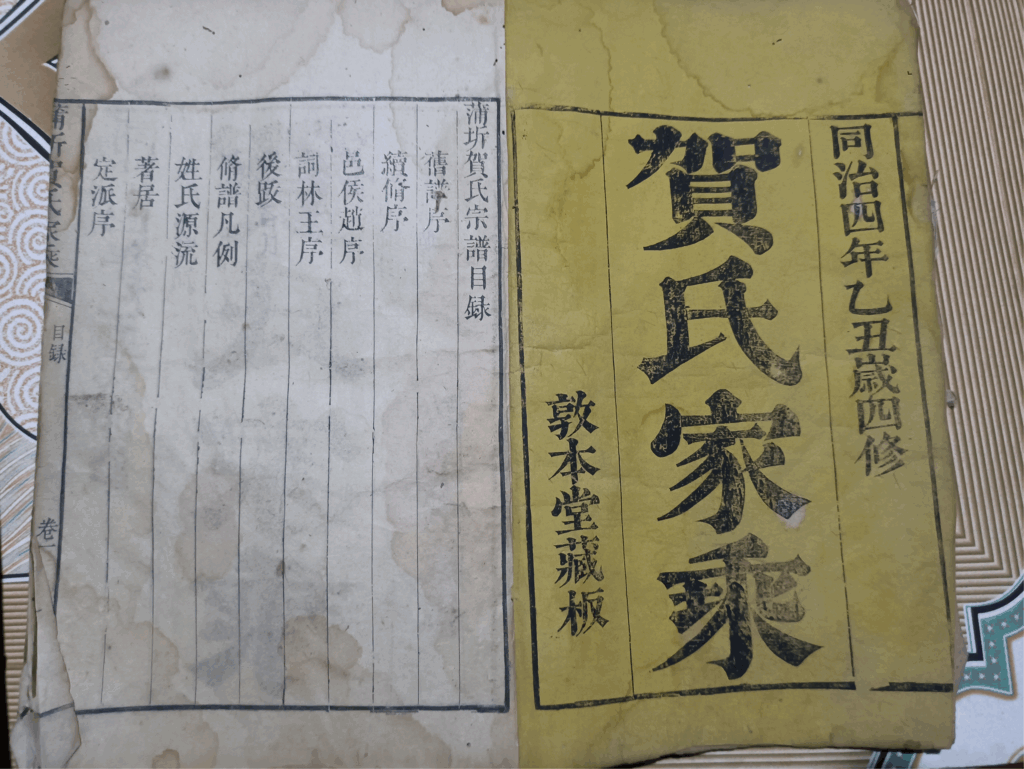 同治四年乙丑歲四修
賀氏家乘
敦本堂藏板
蒲圻賀氏宗譜目録
舊譜序
續脩序
邑侯趙序
詞林王序
後跋
脩譜凡例
姓氏源流
著居
定派序
蒲圻賀氏家乘
目録
卷一